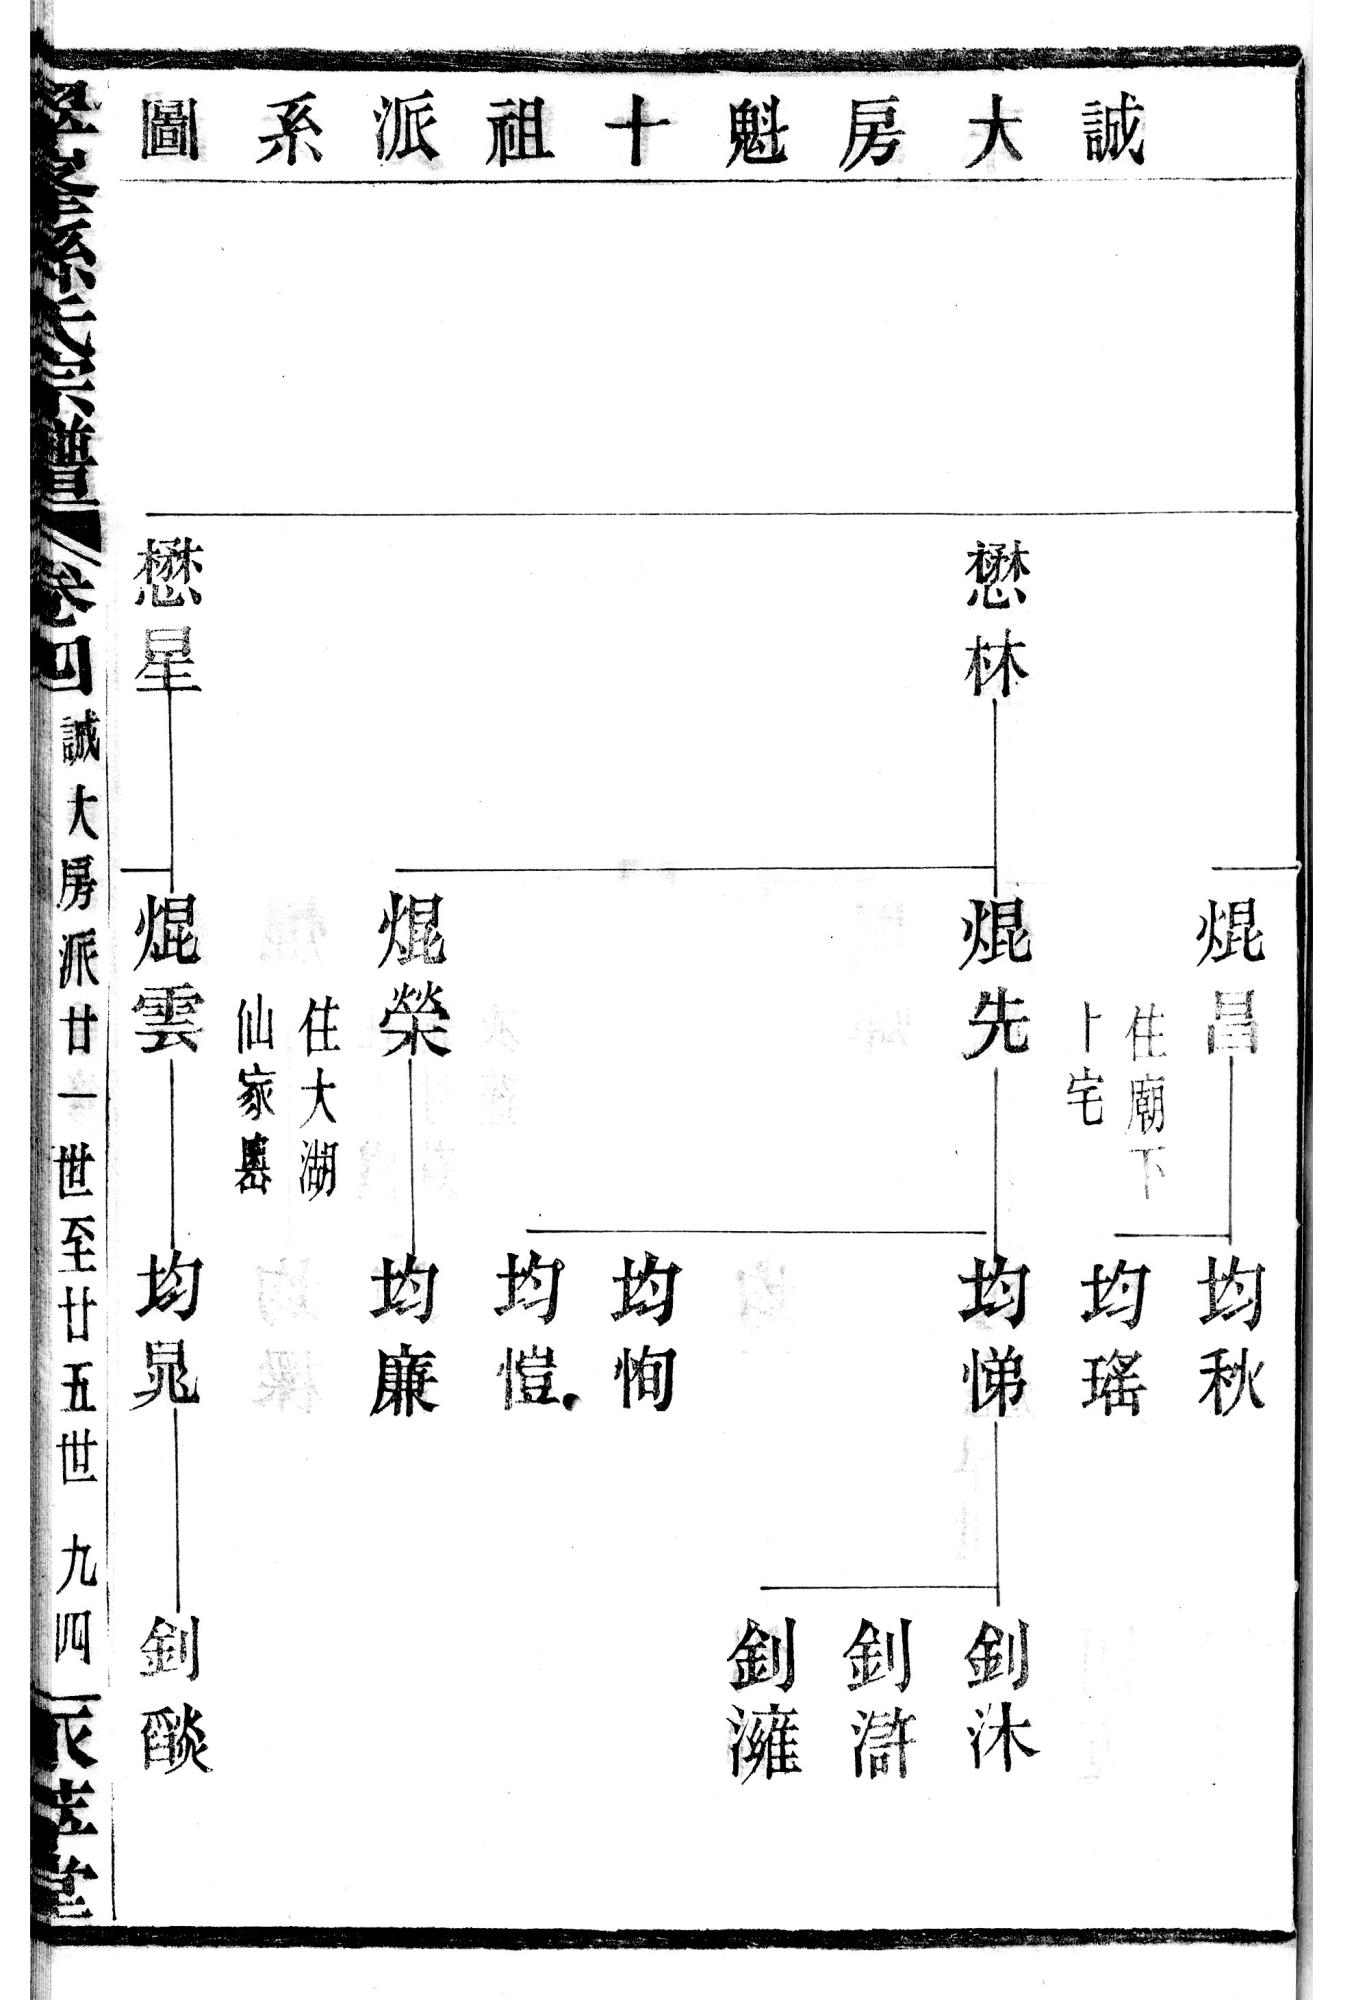 誠大房魁十祖派系圖
懋林
懋星
焜昌
住廟下
卜宅
焜先
焜榮
住大湖
仙家嶴
焜雲
均秋
均瑤
均悌
均恂
均愷
均廉
均晁
釗沐
釗滸
釗澭
釗醈
孫氏宗譜
卷四
誠大房派廿一世至廿五世
九四
堂